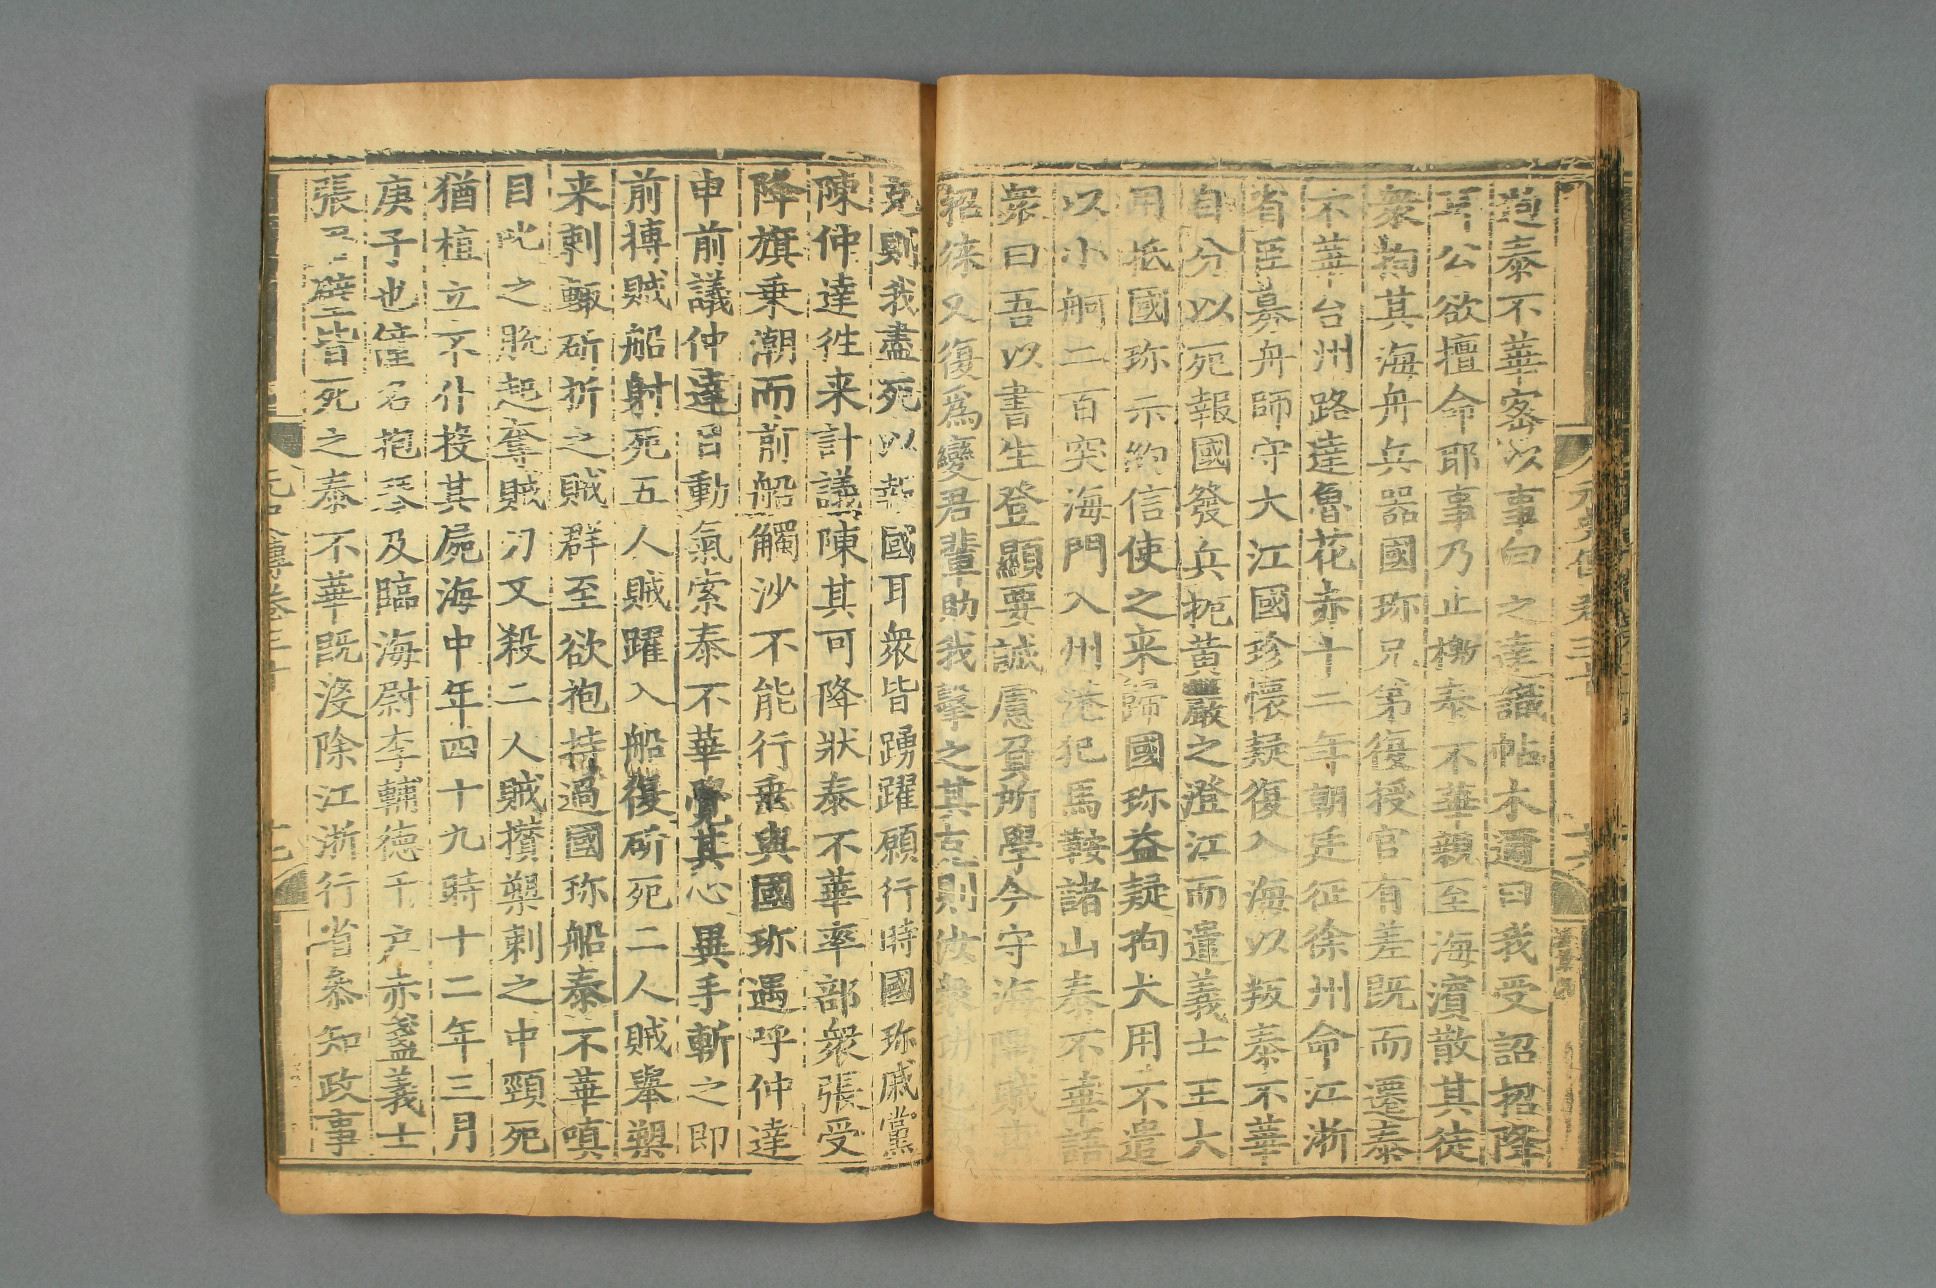 造泰不華密以事白之達識帖木邇曰我受詔招降
耳公欲擅命耶事乃止檄泰不華親至海濵散其徒
衆拘其海舟兵器國珎兄弟復授官有差既而遷泰
不華台州路達魯花赤十二年朝廷征徐州命江浙
省臣募舟師守大江國珍懷疑復入海以叛泰不華
自分以死報國發兵扼黄巖之澄江而遣義士王大
用抵國珎示約信使之来歸國珎益疑拘大用不遣
以小舸二百突海門入州港犯馬鞍諸山泰不華語
衆曰吾以書生登顯要誠慮負所學今守海隅賊甫
招徕又復爲變君輩助我擊之其克則汝衆功也不
克則我盡死以報國耳衆皆踴躍願行時國珎戚黨
陳仲達徃来計議陳其可降狀泰不華率部衆張受
降旗乗潮而前船觸沙不能行垂與國珎遇呼仲達
申前議仲達目動氣索泰不華覺其心異手斬之即
前搏賊船射死五人賊躍入船復斫死二人賊舉槊
来刺輙斫折之賊群至欲抱持過國珎船泰不華嗔
目叱之脱起奪賊刀又殺二人賊攅槊刺之中頸死
猶植立不仆投其屍海中年四十九時十二年三月
庚子也僮名抱琴及臨海尉李輔德千户赤盞義士
張君璧皆死之泰不華既没除江浙行省叅知政事
元史列傳卷三十
十六